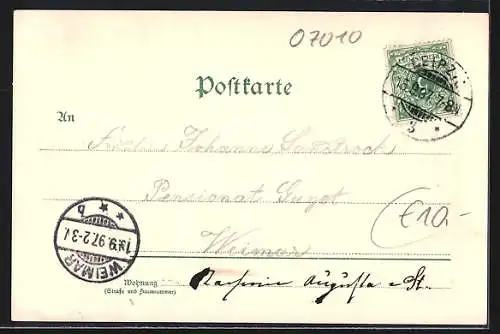 07010
LEIPZIG
3
Postkarte
An
Fräulein Johanna Sandrock
Pensionat Guyot
€10.-
Weimar
* b *
9.97.2-3
WEIMAR
Wohnung
(Straße und Hausnummer)
Kaiserin Augusta - St.